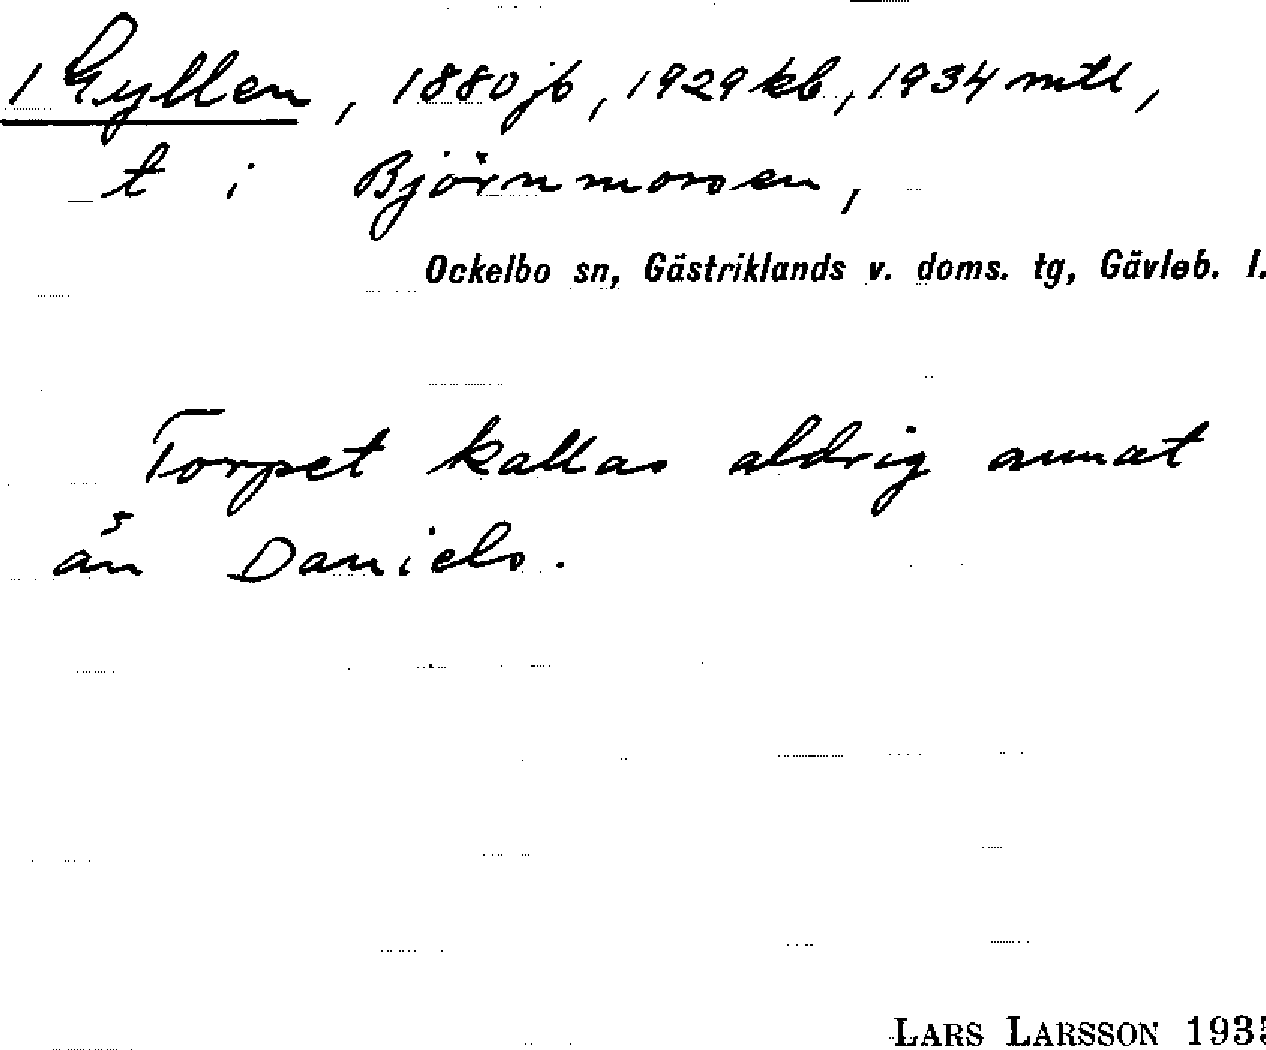 / Gyllen, 1880 jb, 1929 kb, 1934 mtl,
t i Björnmorsen,
Ockelbo sn, Gästriklands v. doms. tg, Gävleb. l.
Torpet kallas aldrig annat
än Daniels.
LARS LARSSON 193